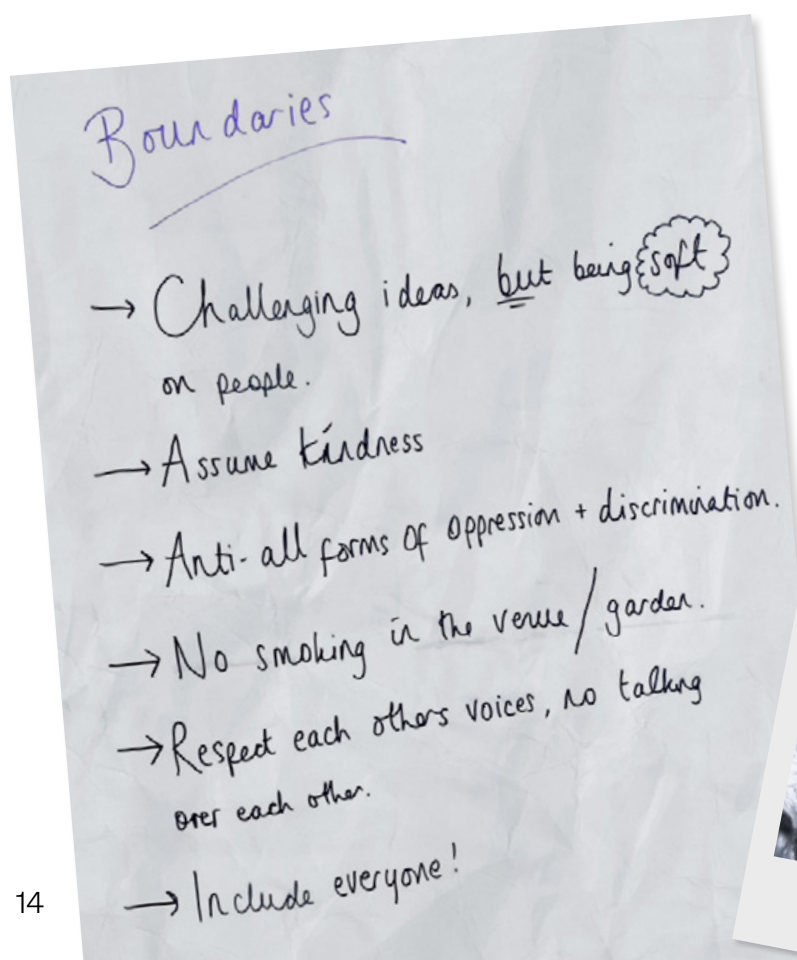 Boundaries
→ Challenging ideas, but being soft
on people.
→ Assume kindness
→ Anti-all forms of oppression + discrimination.
→ No smoking in the venue / garden.
→ Respect each others voices, no talking
over each other.
→ Include everyone!
14